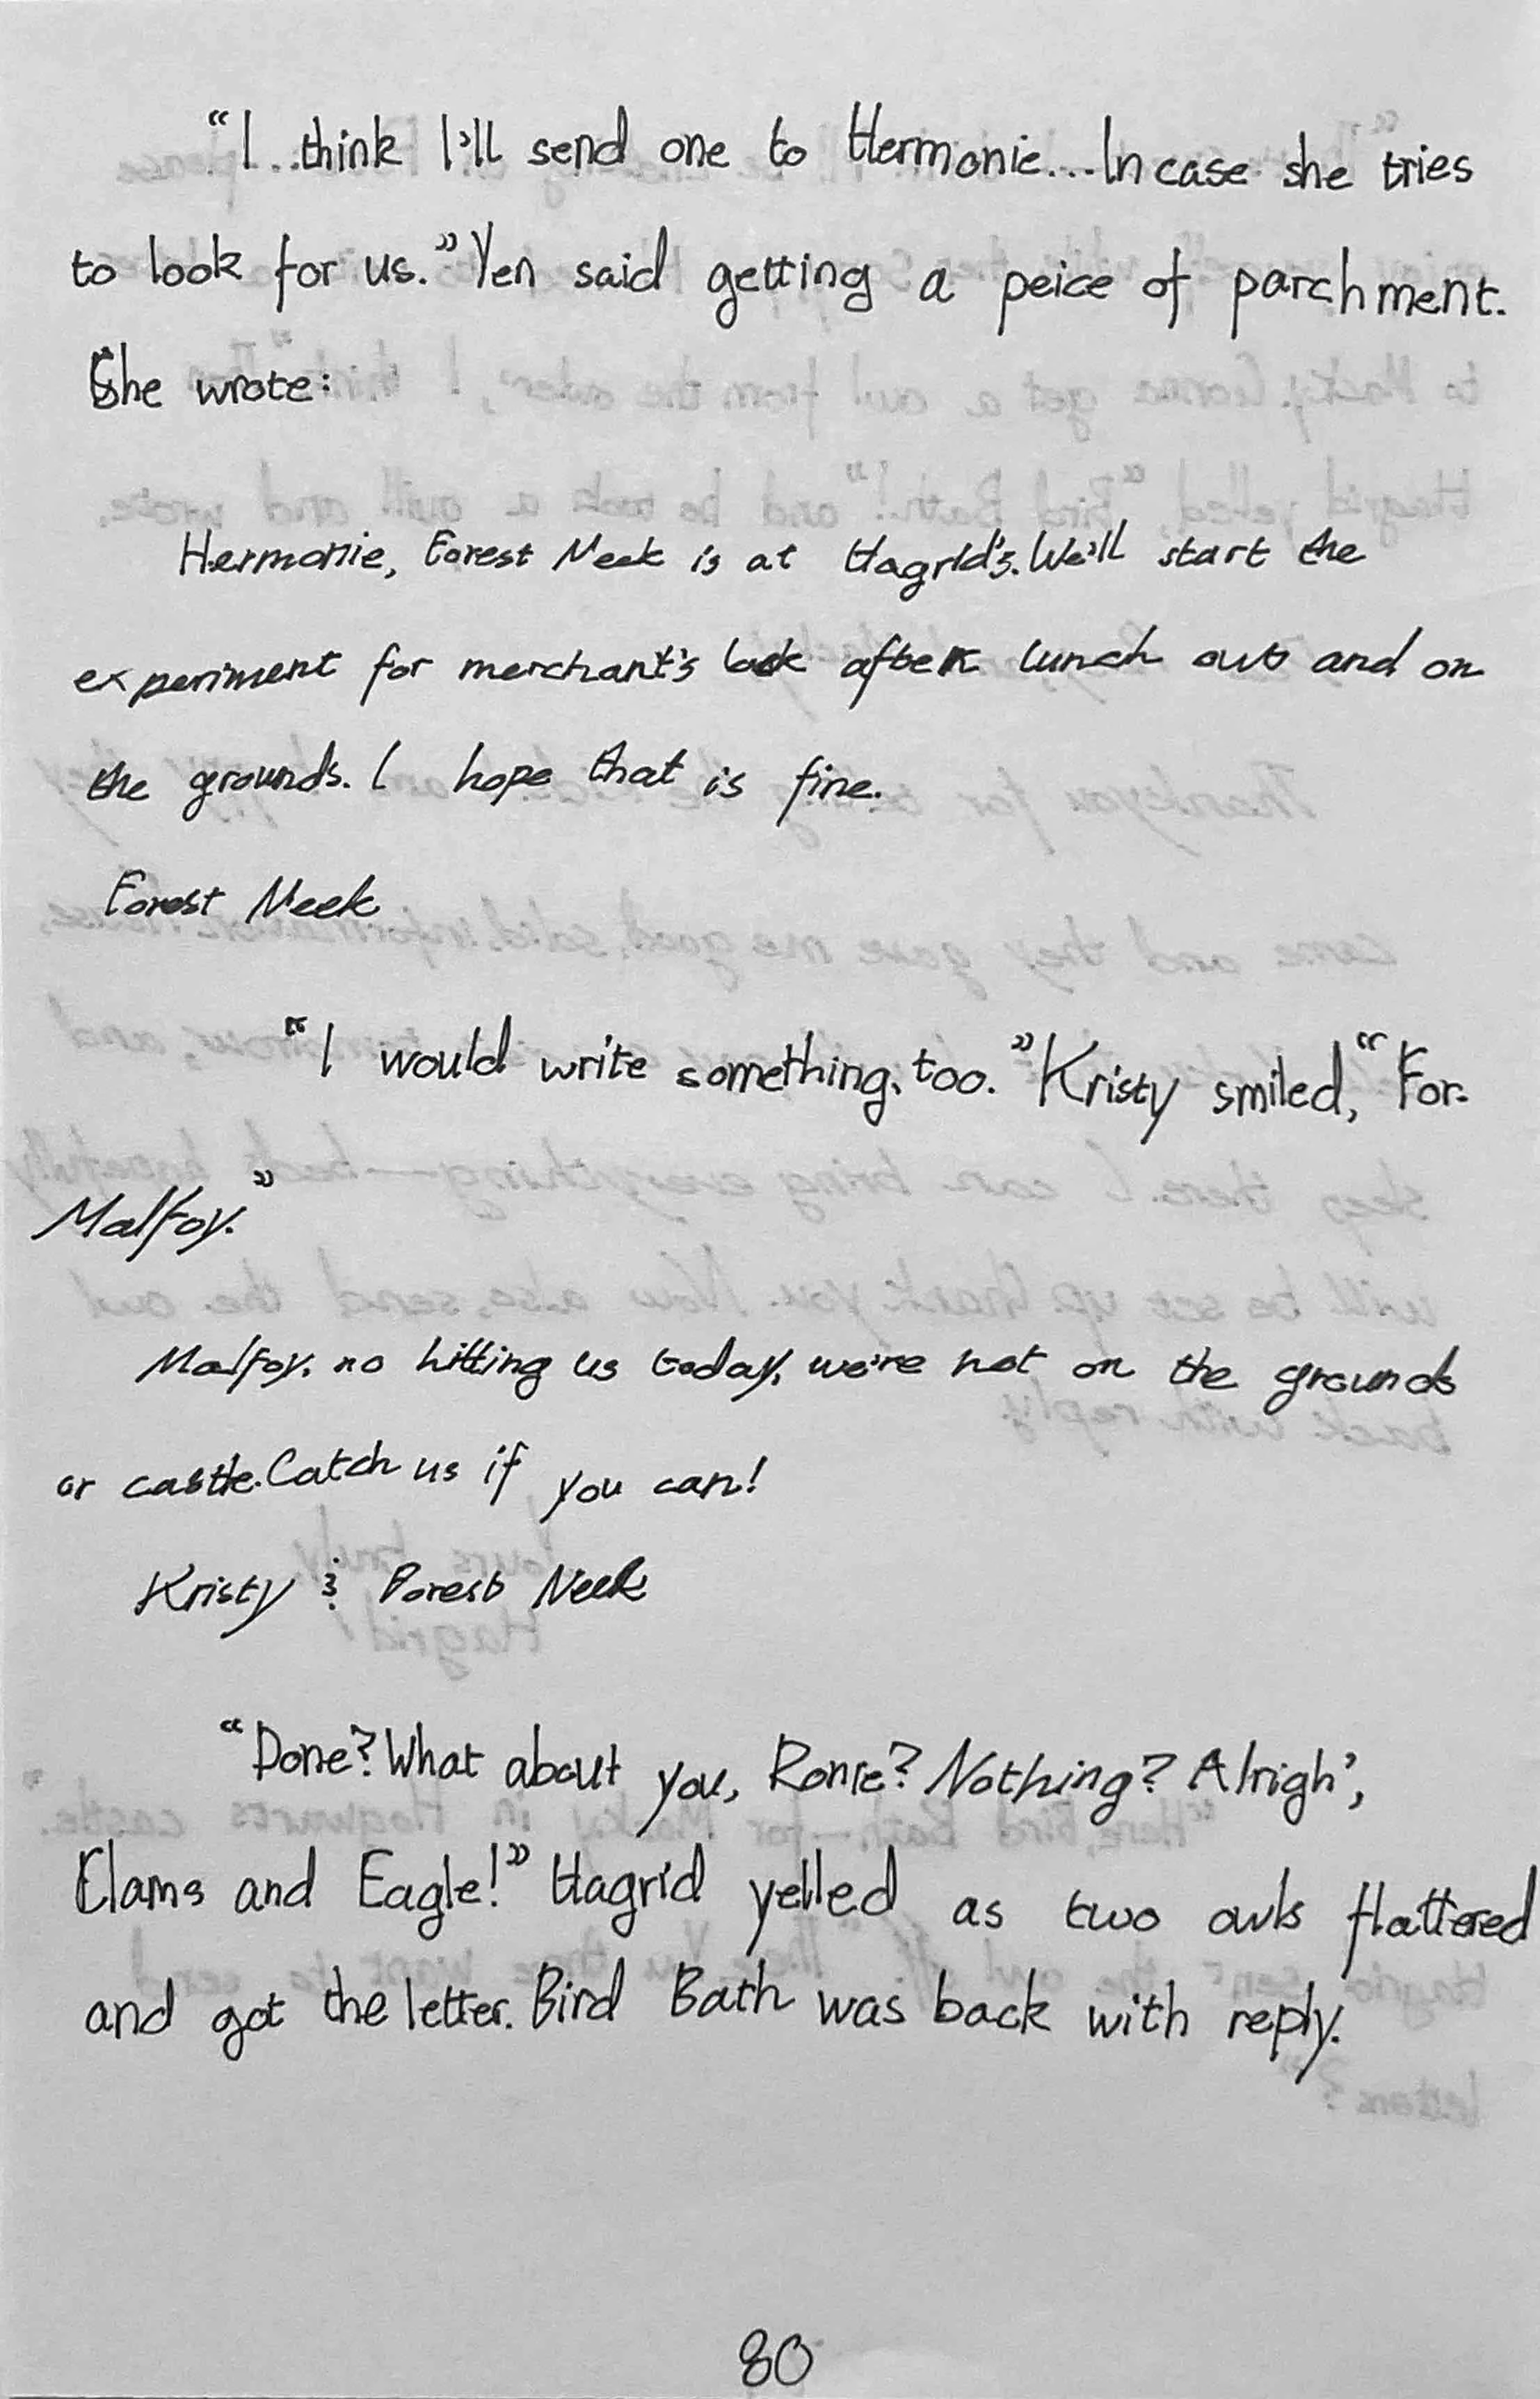 “I...think I'll send one to Hermonie....In case she tries
to look for us.” Yen said getting a peice of parchment.
She wrote:
Hermonie, Forest Meek is at Hagrid's. We'll start the
experiment for merchant's luck after lunch out and on
the grounds. I hope that is fine.
Forest Meek
“I would write something, too.” Kristy smiled, “For-
Malfoy.”
Malfoy, no hitting us today, we're not on the grounds
or castle. Catch us if you can!
Kristy & Forest Neek
“Done? What about you, Ronie? Nothing? Alrigh',
Elams and Eagle!” Hagrid yelled as two owls flattered
and got the letter. Bird Bath was back with reply.
80